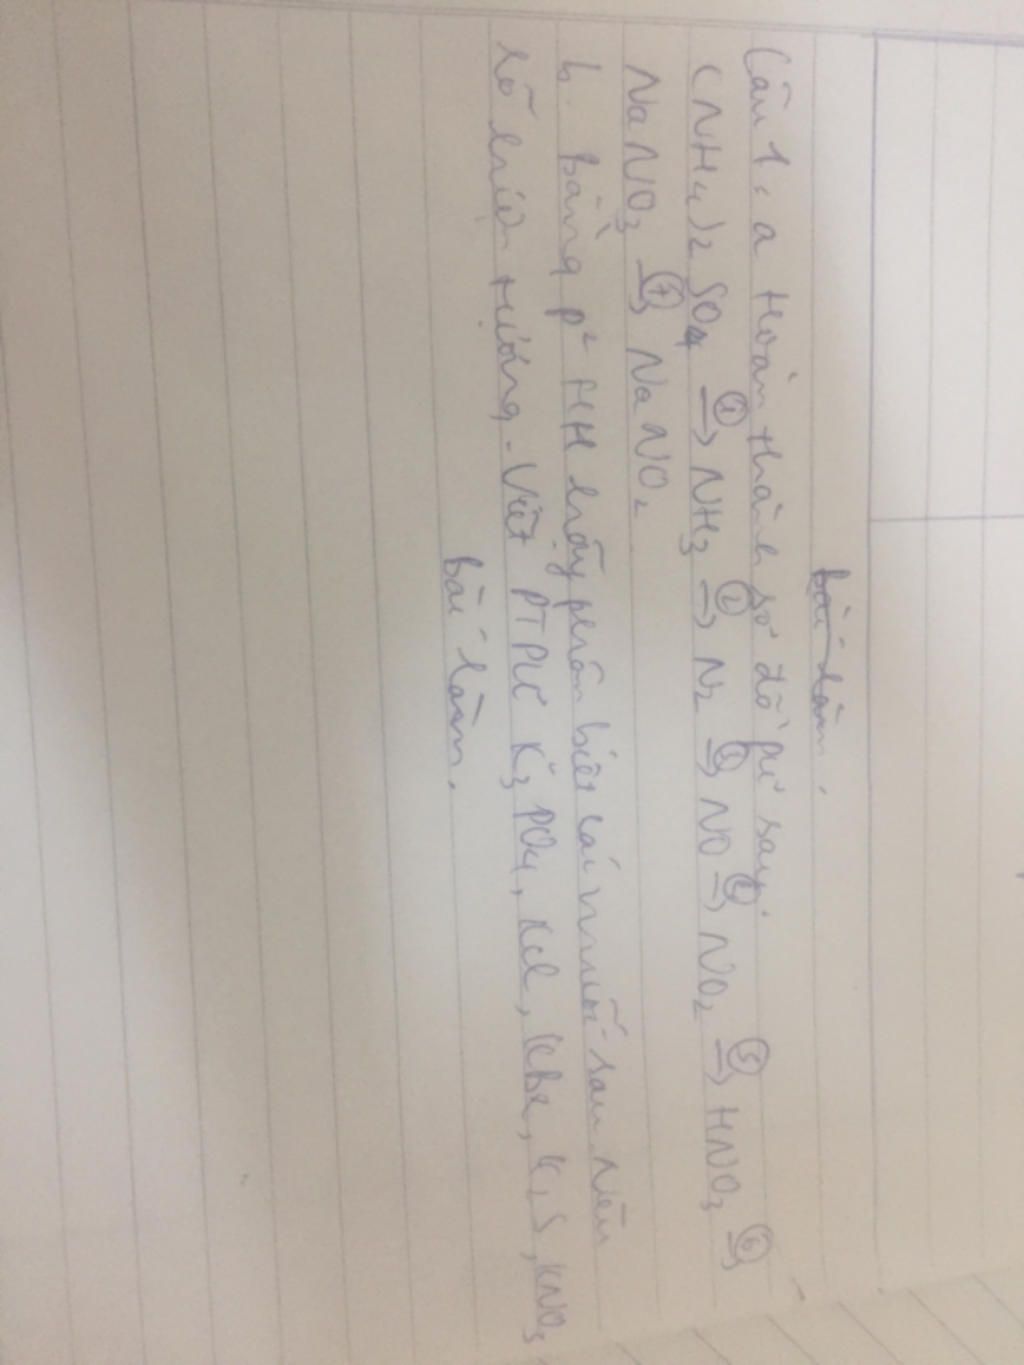 bài làm.
Câu 1: a Hoàn thành sơ đồ pư sau:
(NH4)2 SO4 ①→ NH3 ②→ N2 ③→ NO ④→ NO2 ⑤→ HNO3 ⑥→
NaNO3 ⑦→ NaNO2
b. bằng p² HH hãy phân biệt các sau
lỗ tượng. Viết PTPƯ K3PO4, KCl, KBr, K2S, KNO3
bài làm.